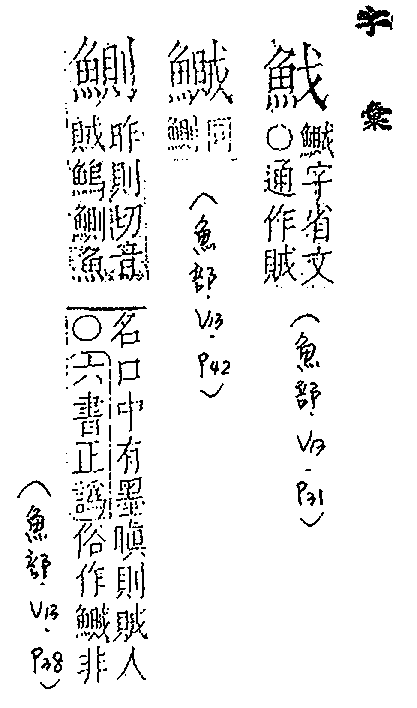 字彙
鱡字省文
○通作賊
(魚部.V13.P31)
鱡
同
鰂
(魚部.V13.P42)
鰂
昨則切音
賊鰞鰂魚
名口中有墨瞋則賊人
○六書正譌俗作鱡非
(魚部.V13.P38)